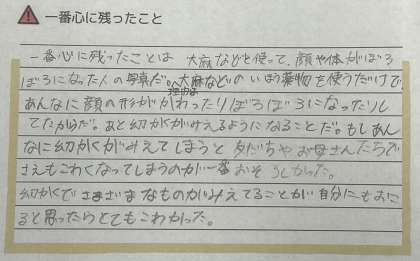 一番心に残ったこと
一番心に残ったことは 大麻などを使って、顔や体がぼろ
ぼろになった人の写真だ。大麻などのいほう薬物を使うだけで、
理由は
あんなに顔の形がかわったりぼろぼろになったりし
てたからだ。あと幻かくがみえるようになることだ。もしあん
なに幻かくがみえてしまうと 友だちやお母さんたちで
さえもこわくなってしまうのが一番おそろしかった。
幻かくでさまざまなものがみえてることが自分にもおこ
ると思ったらとてもこわかった。